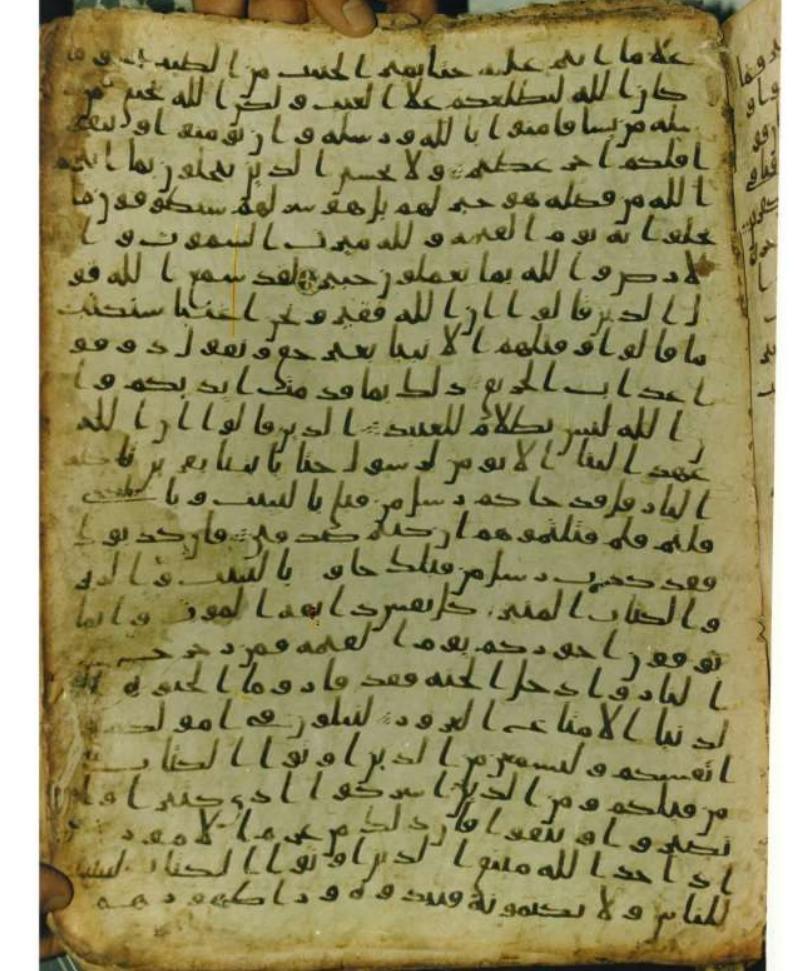 علا ما انتم عليه حتا يميز الخبيث من الطيب وما
كان الله ليطلعكم علا الغيب ولكن الله يجتبي من
رسله من يشا فامنوا بالله ورسله وان تومنوا وتتقو
ا فلكم اجر عظيم ولا يحسبن الذين يبخلون بما اتيهم
الله من فضله هو خير لهم بل هو شر لهم سيطوقون ما
بخلوا به يوم القيمة ولله ميرث السموت وا
لارض والله بما تعملون خبير لقد سمع الله قو
ل الذين قالوا ان الله فقير ونحن اغنيا سنكتب
ما قالوا وقتلهم الانبيا بغير حق ونقول ذوقو
ا عذاب الحريق ذلك بما قدمت ايديكم وا
ن الله ليس بظلام للعبيد الذين قالوا ان الله
عهد الينا الا نومن لرسول حتا ياتينا بقربن تاكله
النار قل قد جاكم رسل من قبلي بالبينت وبالذي
قلتم فلم قتلتموهم ان كنتم صدقين فان كذبو
فقد كذب رسل من قبلك جاو بالبينت والزبر
والكتاب المنير كل نفس ذايقة الموت وانما
توفون اجوركم يوم القيمة فمن زحزح عن
النار وادخل الجنة فقد فاز وما الحيوة ا
لدنيا الا متاع الغرور لتبلون في امولكم و
انفسكم ولتسمعن من الذين اوتوا الكتاب
من قبلكم ومن الذين اشركوا اذي كثيرا وان
تصبروا وتتقوا فان ذلك من عزم الامور و
اذ اخذ الله ميثق الذين اوتوا الكتاب لتبيننه
للناس ولا تكتمونه فنبذوه ورا ظهورهم